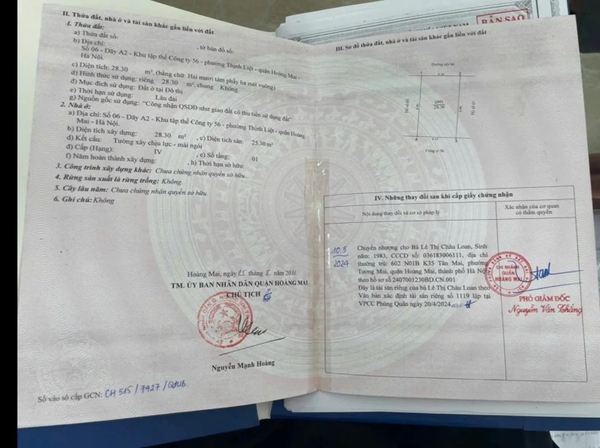 BẢN SAO
II. Thửa đất, nhà ở và tài sản khác gắn liền với đất
1. Thửa đất:
a) Thửa đất số: , tờ bản đồ số:
b) Địa chỉ:
Số 06 - Dãy A2 - Khu tập thể Công ty 56 - phường Thịnh Liệt - quận Hoàng Mai -
Hà Nội.
c) Diện tích: 28.30 m², (bằng chữ: Hai mươi tám phẩy ba mét vuông)
d) Hình thức sử dụng: riêng 28.30 m², chung Không
đ) Mục đích sử dụng: Đất ở tại Đô thị
e) Thời hạn sử dụng: Lâu dài
g) Nguồn gốc sử dụng: "Công nhận QSDĐ như giao đất có thu tiền sử dụng đất"
2. Nhà ở:
a) Địa chỉ: Số 06 - Dãy A2 - Khu tập thể Công ty 56 - phường Thịnh Liệt - quận Hoàng
Mai - Hà Nội.
b) Diện tích xây dựng: 28.30 m², c) Diện tích sàn: 25.30 m²
d) Kết cấu: Tường xây chịu lực - mái ngói
đ) Cấp (Hạng): IV , e) Số tầng: 01
f) Năm hoàn thành xây dựng: , h) Thời hạn sở hữu:
3. Công trình xây dựng khác: Chưa chứng nhận quyền sở hữu
4. Rừng sản xuất là rừng trồng: Không
5. Cây lâu năm: Chưa chứng nhận quyền sở hữu
6. Ghi chú: Không
Hoàng Mai, ngày 25 tháng
TM. ỦY BAN NHÂN DÂN QUẬN HOÀNG MAI
CHỦ TỊCH
Nguyễn Mạnh Hoàng
Số vào sổ cấp GCN: CH 515 / 7427 /
III. Sơ đồ thửa đất, nhà ở và tài sản khác gắn liền với đất
IV. Những thay đổi sau khi cấp giấy chứng nhận
Nội dung thay đổi và cơ sở pháp lý
Xác nhận của cơ quan
có thẩm quyền
10.5
2024
Chuyển nhượng cho Bà Lê Thị Châu Loan, Sinh
năm: 1983, CCCD số: 036183006111, địa chỉ
thường trú: 602 N01B K35 Tân Mai, phường
Tương Mai, quận Hoàng Mai, thành phố Hà Nội
theo hồ sơ số 2407001230BD.CN.001
Đây là tài sản riêng của bà Lê Thị Châu Loan theo
Văn bản xác định tài sản riêng số 1119 lập tại
VPCC Phùng Quân ngày 20/4/2024
CHI NHÁNH
QUẬN
HOÀNG MAI
PHÓ GIÁM ĐỐC
Nguyễn Văn Thắng